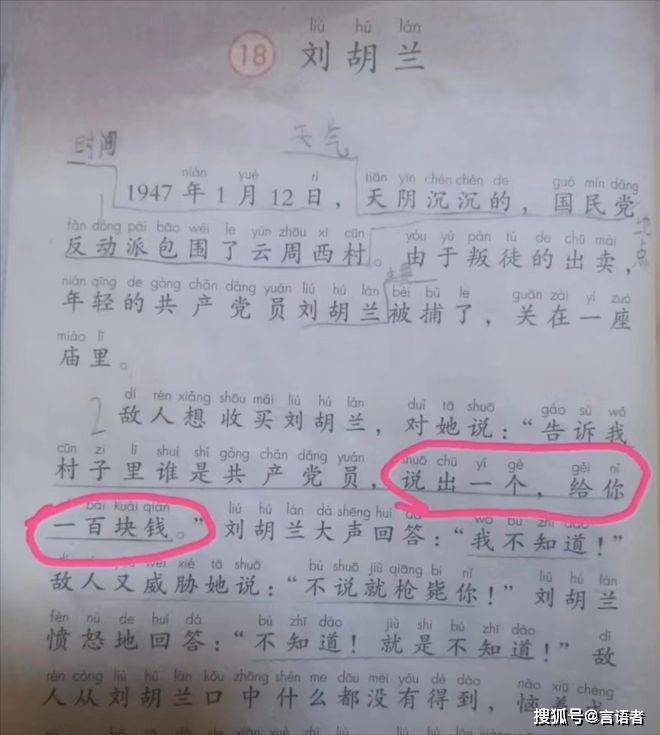 liú hú lán
18 刘胡兰
时间 天气
nián yuè rì tiān yīn chén chén de guó mín dǎng
1947 年 1 月 12 日，天阴沉沉的，国民党
fǎn dòng pài bāo wéi le yún zhōu xī cūn
反动派包围了云周西村。
地点
yóu yú pàn tú de chū mài
由于叛徒的出卖，
nián qīng de gòng chǎn dǎng yuán liú hú lán bèi bǔ le guān zài yí zuò
年轻的共产党员刘胡兰被捕了，关在一座
miào lǐ
庙里。
2
dí rén xiǎng shōu mǎi liú hú lán duì tā shuō gào sù wǒ
敌人想收买刘胡兰，对她说：“告诉我
cūn zi lǐ shuí shì gòng chǎn dǎng yuán shuō chū yí gè gěi nǐ
村子里谁是共产党员，说出一个，给你
bǎi kuài qián liú hú lán dà shēng huí dá wǒ bù zhī dào
一百块钱。”刘胡兰大声回答：“我不知道！”
wēi xié tā shuō bù shuō jiù qiāng bì nǐ liú hú lán
敌人又威胁她说：“不说就枪毙你！”刘胡兰
fèn nù de huí dá bù zhī dào jiù shì bù zhī dào dí
愤怒地回答：“不知道！就是不知道！”敌
rén cóng liú hú lán kǒu zhōng shén me dōu méi yǒu dé dào nǎo xiū chéng
人从刘胡兰口中什么都没有得到，恼羞成
搜狐号@言语者